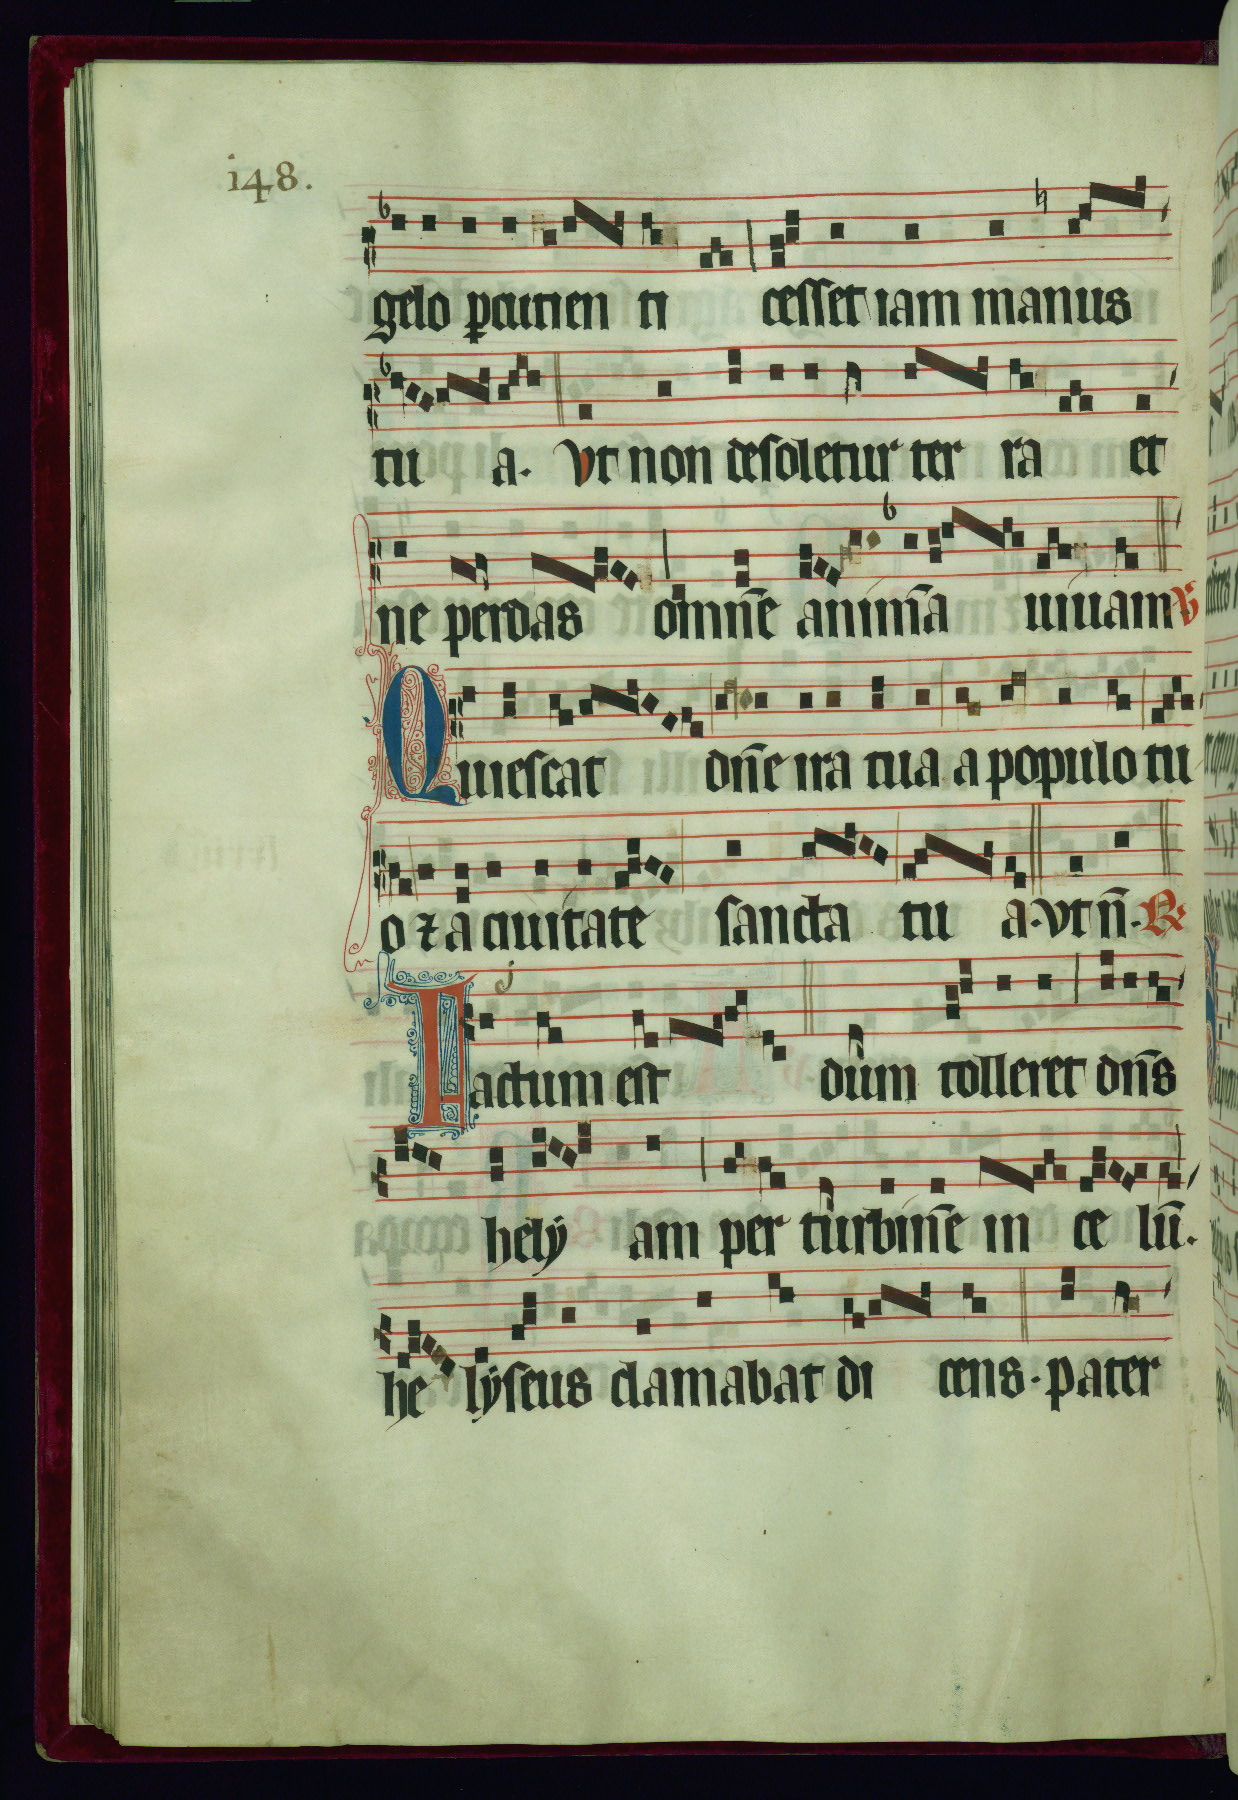 148.
gelo ꝑcutien ti cesset iam manus
tu a. vt non desoletur ter ra et
ne perdas omnē animā uiuam ℣
Quiescat dn̄e ira tua a populo tu
o ⁊ a ciuitate sancta tu a. vt n̄. ℟
Factum est dum tolleret dn̄s
hely am per turbinē in ce lū.
he lyseus clamabat di cens. pater